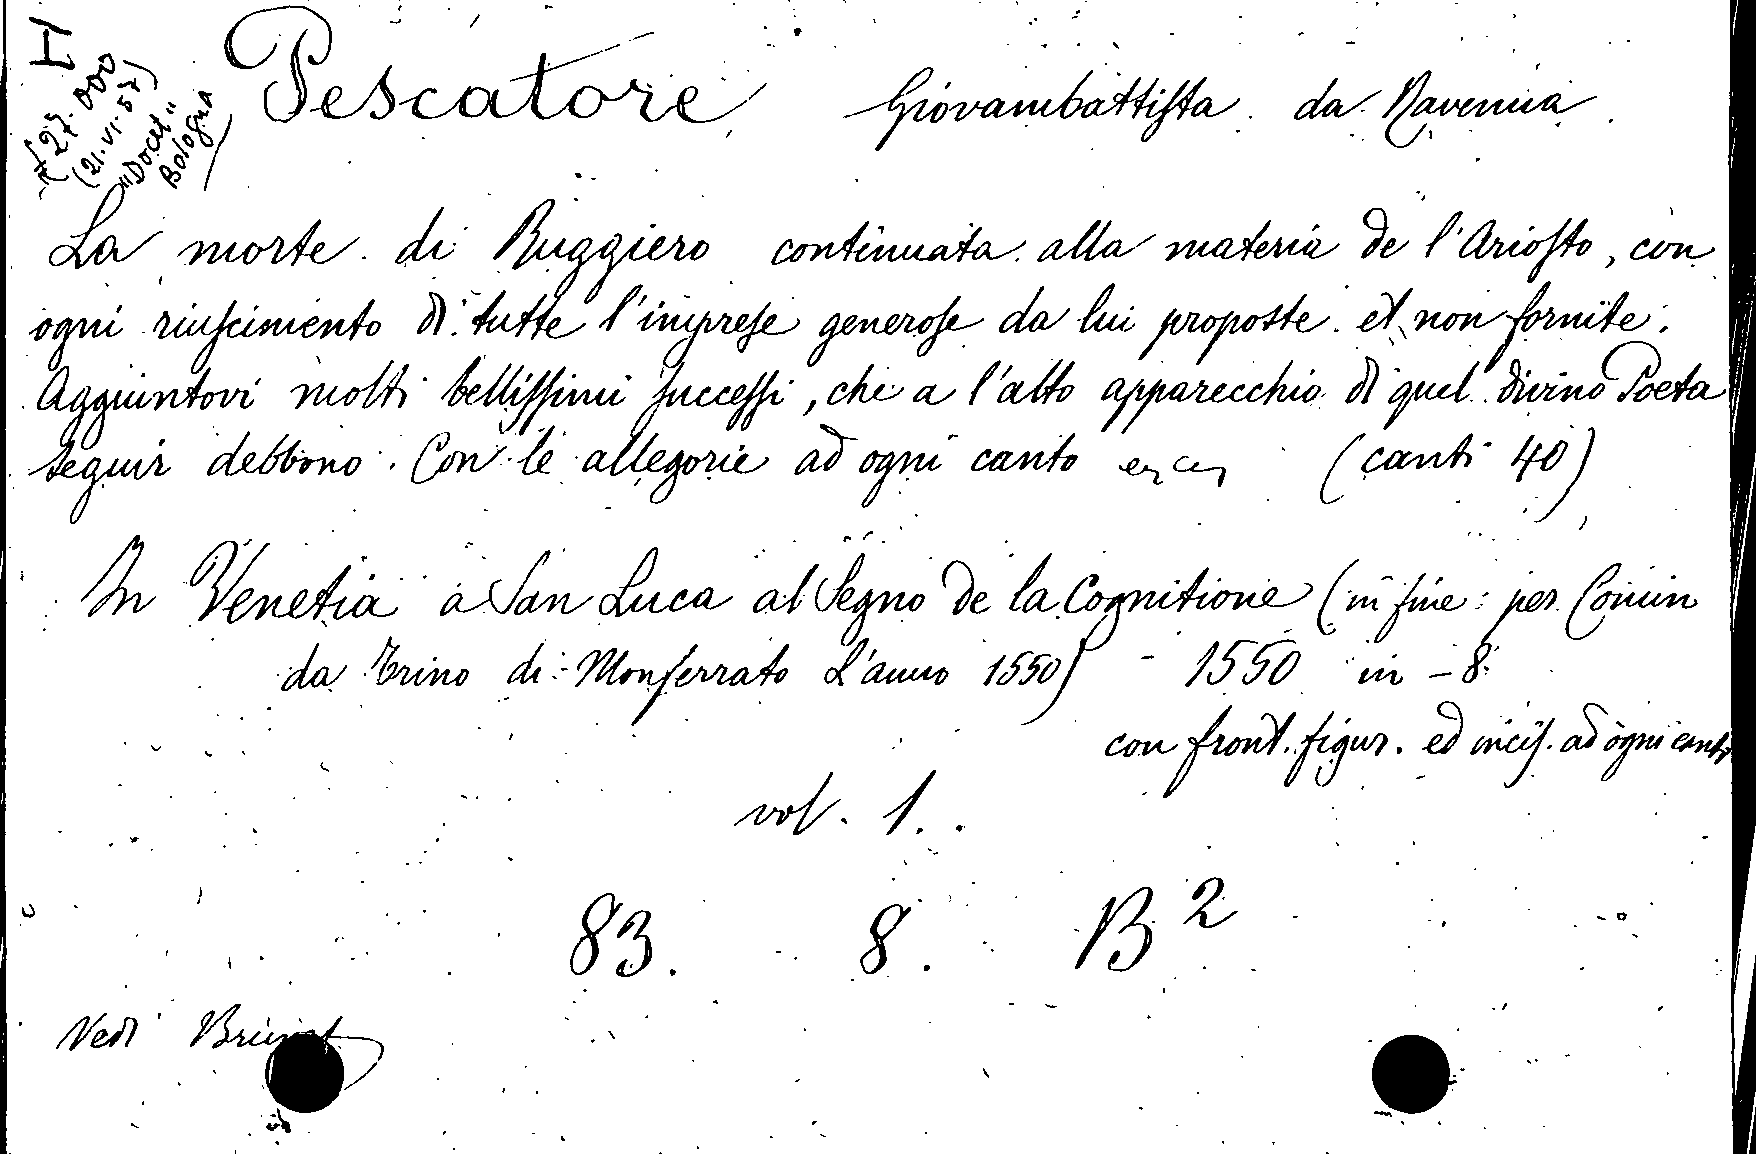 H
£ 27.000
(21.VI.57)
"Docet"
Bologna
Pescatore Giovambattista da Ravenna
La morte di Ruggiero continuata alla materia de l'Ariosto, con
ogni riuscimento di tutte l'imprese generose da lui proposte et non fornite.
Aggiuntovi molti bellissimi successi, che a l'alto apparecchio di quel divino Poeta
seguir debbono. Con le allegorie ad ogni canto (canti 40)
In Venetia a San Luca al Segno de la Cognitione (in fine: per Comin
da Trino di Monferrato L'anno 1550) - 1550 in - 8
con front. figur. ed incis. ad ogni canto
vol. 1.
83. 8. B2
Vedi Brunet